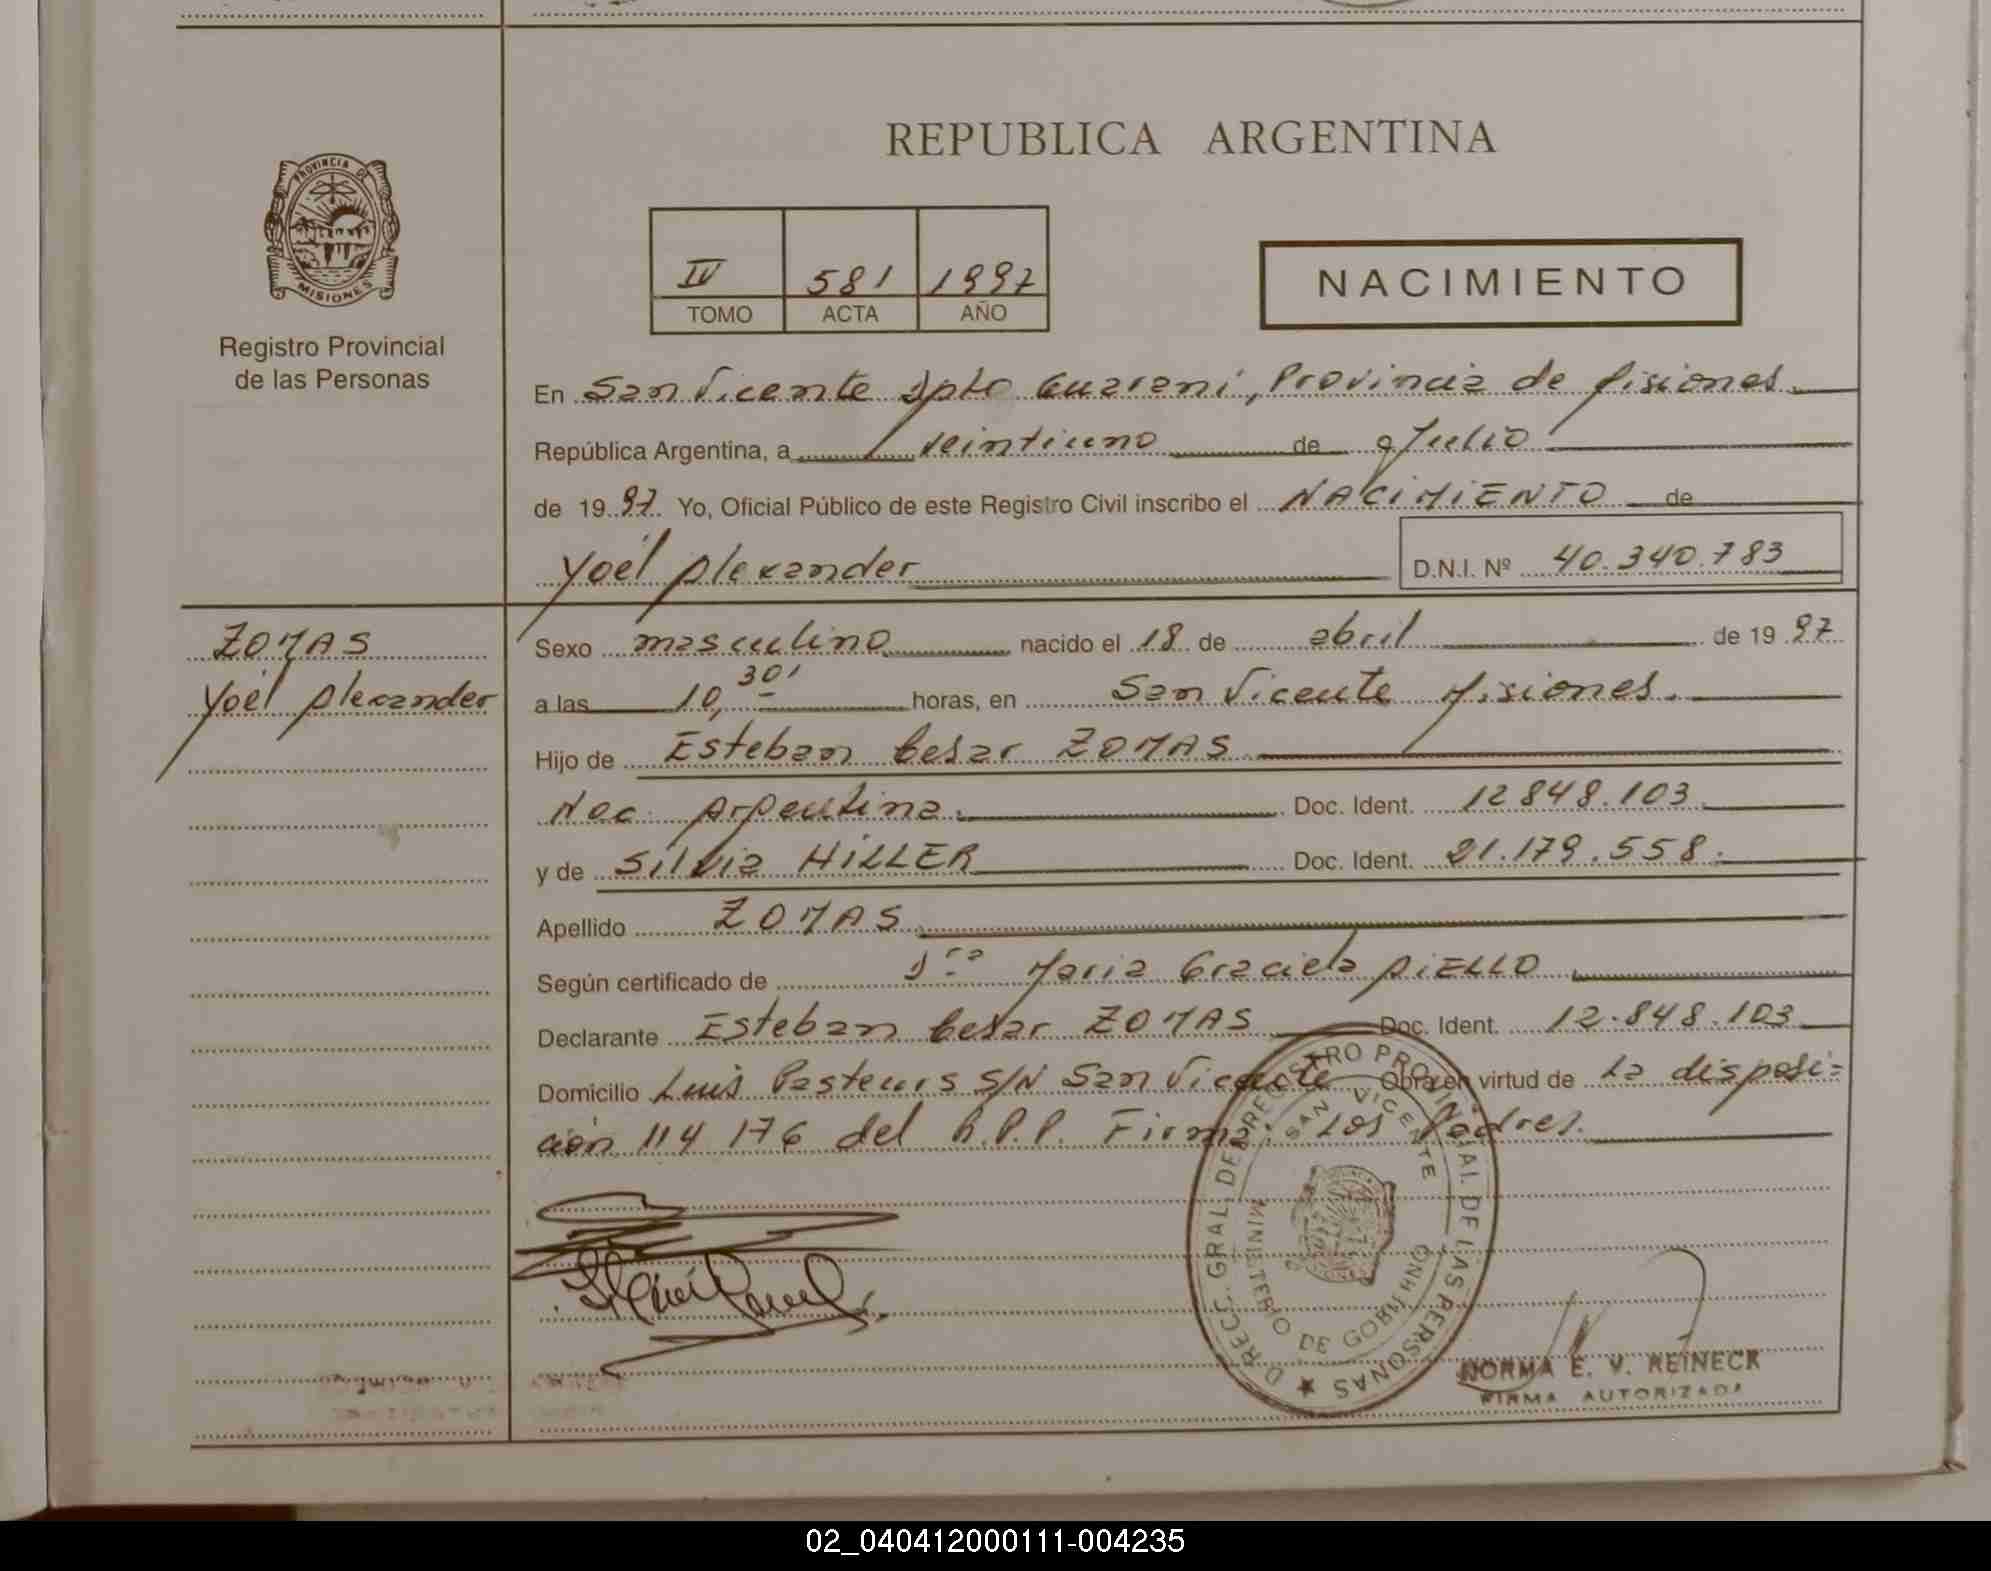 REPUBLICA ARGENTINA
PROVINCIA DE
MISIONES
Registro Provincial
de las Personas
IV 581 1997
TOMO ACTA AÑO
NACIMIENTO
En San Vicente Dpto Guarani, Provincia de Misiones.
República Argentina, a veintiuno de Julio
de 1997 Yo, Oficial Público de este Registro Civil inscribo el NACIMIENTO de
Yoel Alexander D.N.I. Nº 40.340.783
ZOMAS
Yoel Alexander
Sexo masculino nacido el 18 de abril de 1997
a las 10,30' horas, en San Vicente Misiones.
Hijo de Esteban Cesar ZOMAS
Nac. Argentina. Doc. Ident. 12848.103
y de Silvia HILLER Doc. Ident. 21.179.558.
Apellido ZOMAS
Según certificado de Dra Maria Graciela AIELLO
Declarante Esteban Cesar ZOMAS Doc. Ident. 12.848.103
Domicilio Luis Pasteurs S/N San Vicente Obra en virtud de la disposi=
ción 114 176 del R.P.P. Firma: Los Padres.
DIRECC. GRAL. DEL REGISTRO PROVINCIAL DE LAS PERSONAS
SAN VICENTE
MINISTERIO DE GOBIERNO
NORMA E. V. REINECK
FIRMA AUTORIZADA
02_040412000111-004235